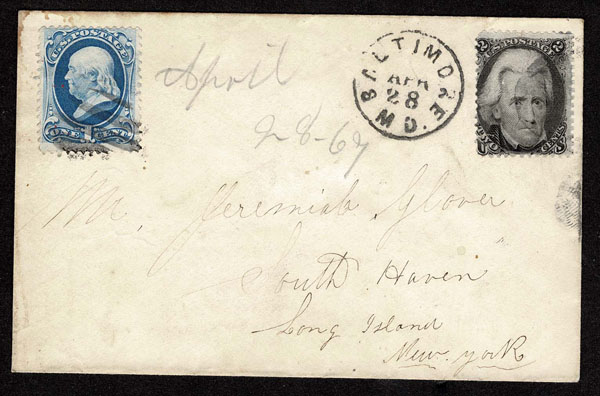 U.S. POSTAGE
ONE CENT
April
28-67
BALTIMORE
APR
28
MD.
U.S. POSTAGE
2 2
Mr. Jeremiah Glover
South Haven
Long Island
New York